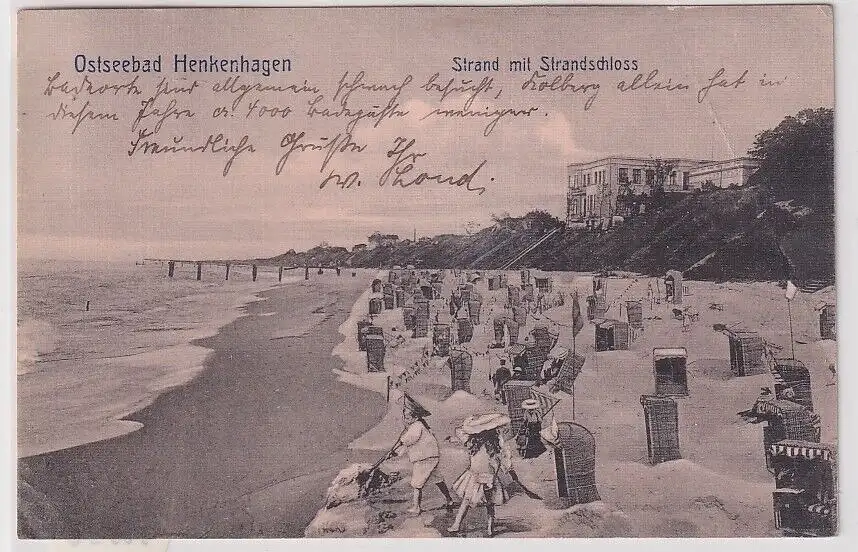 Ostseebad Henkenhagen
Strand mit Strandschloss
Badeorte sind allgemein schwach besucht, Kolberg allein hat in
diesem Jahre ca. 4000 Badegäste weniger.
Freundliche Grüße Ihr
W.